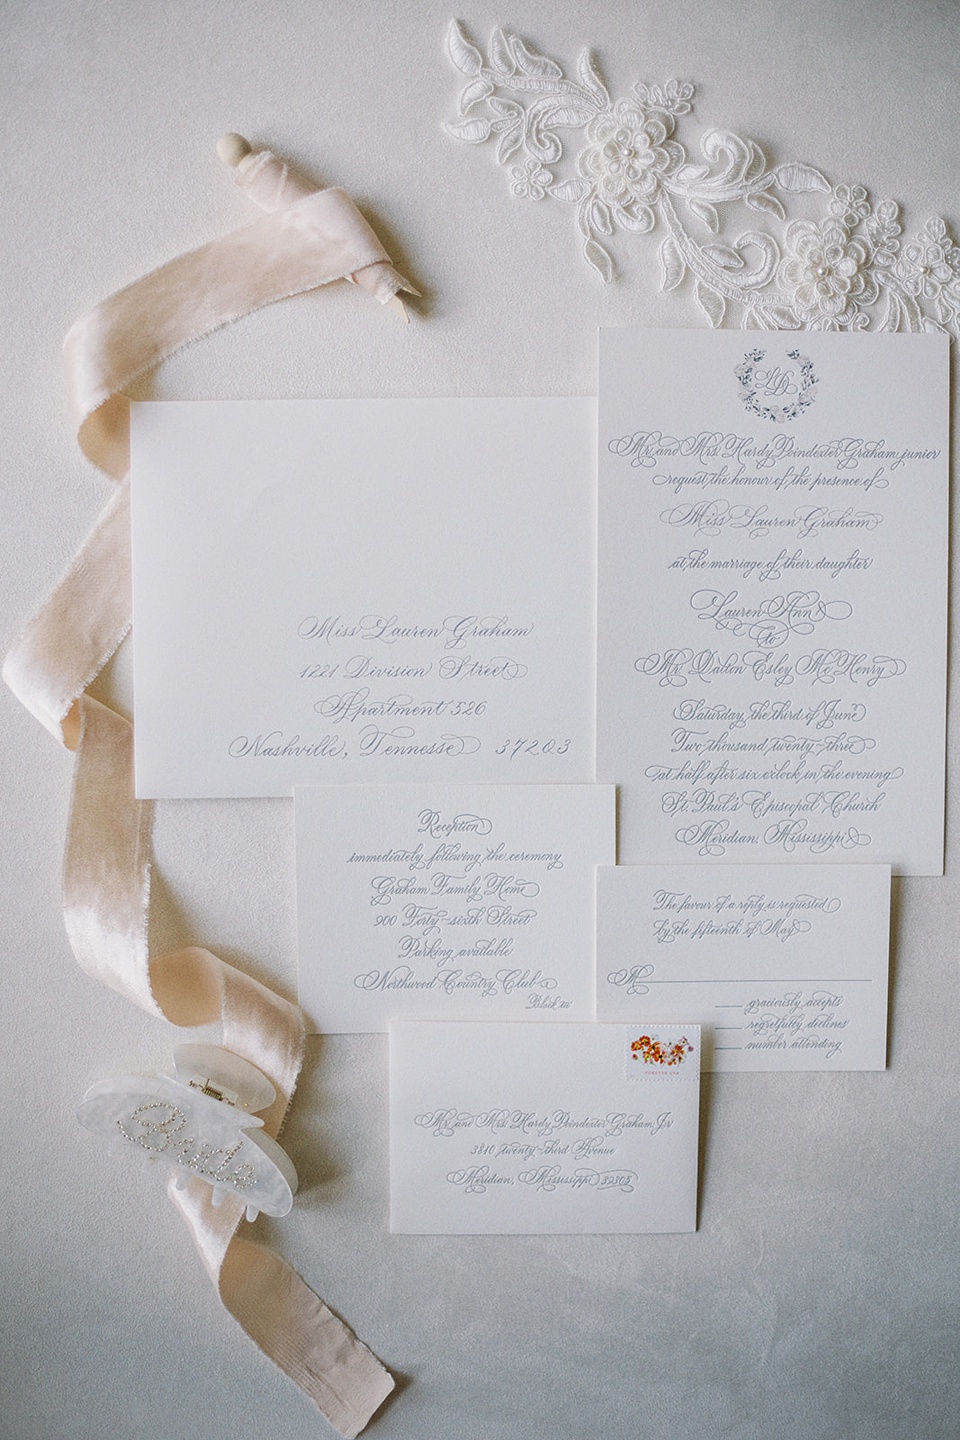 LD
Mr. and Mrs. Hardy Poindexter Graham, junior
request the honour of the presence of
Miss Lauren Graham
at the marriage of their daughter
Lauren Ann
to
Mr. Dalton Esley McHenry
Saturday, the third of June
Two thousand twenty-three
at half after six o'clock in the evening
St. Paul's Episcopal Church
Meridian, Mississippi
Miss Lauren Graham
1221 Division Street
Apartment 526
Nashville, Tennessee 37203
Reception
immediately following the ceremony
Graham Family Home
900 Forty-sixth Street
Parking available
Northwood Country Club
Black tie
The favour of a reply is requested
by the fifteenth of May
M
graciously accepts
regretfully declines
number attending
FOREVER USA
Mr. and Mrs. Hardy Poindexter Graham, Jr
3810 twenty-third Avenue
Meridian, Mississippi 39305
Bride